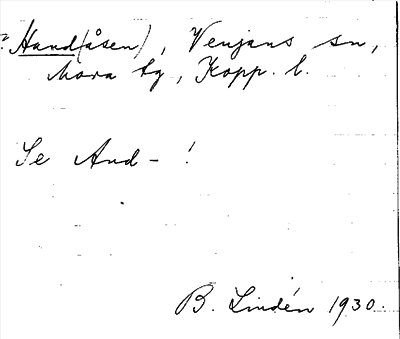 ? Hand(åsen), Venjans sn,
Mora tg, Kopp. l.
Se And- !
B. Lindén 1930.